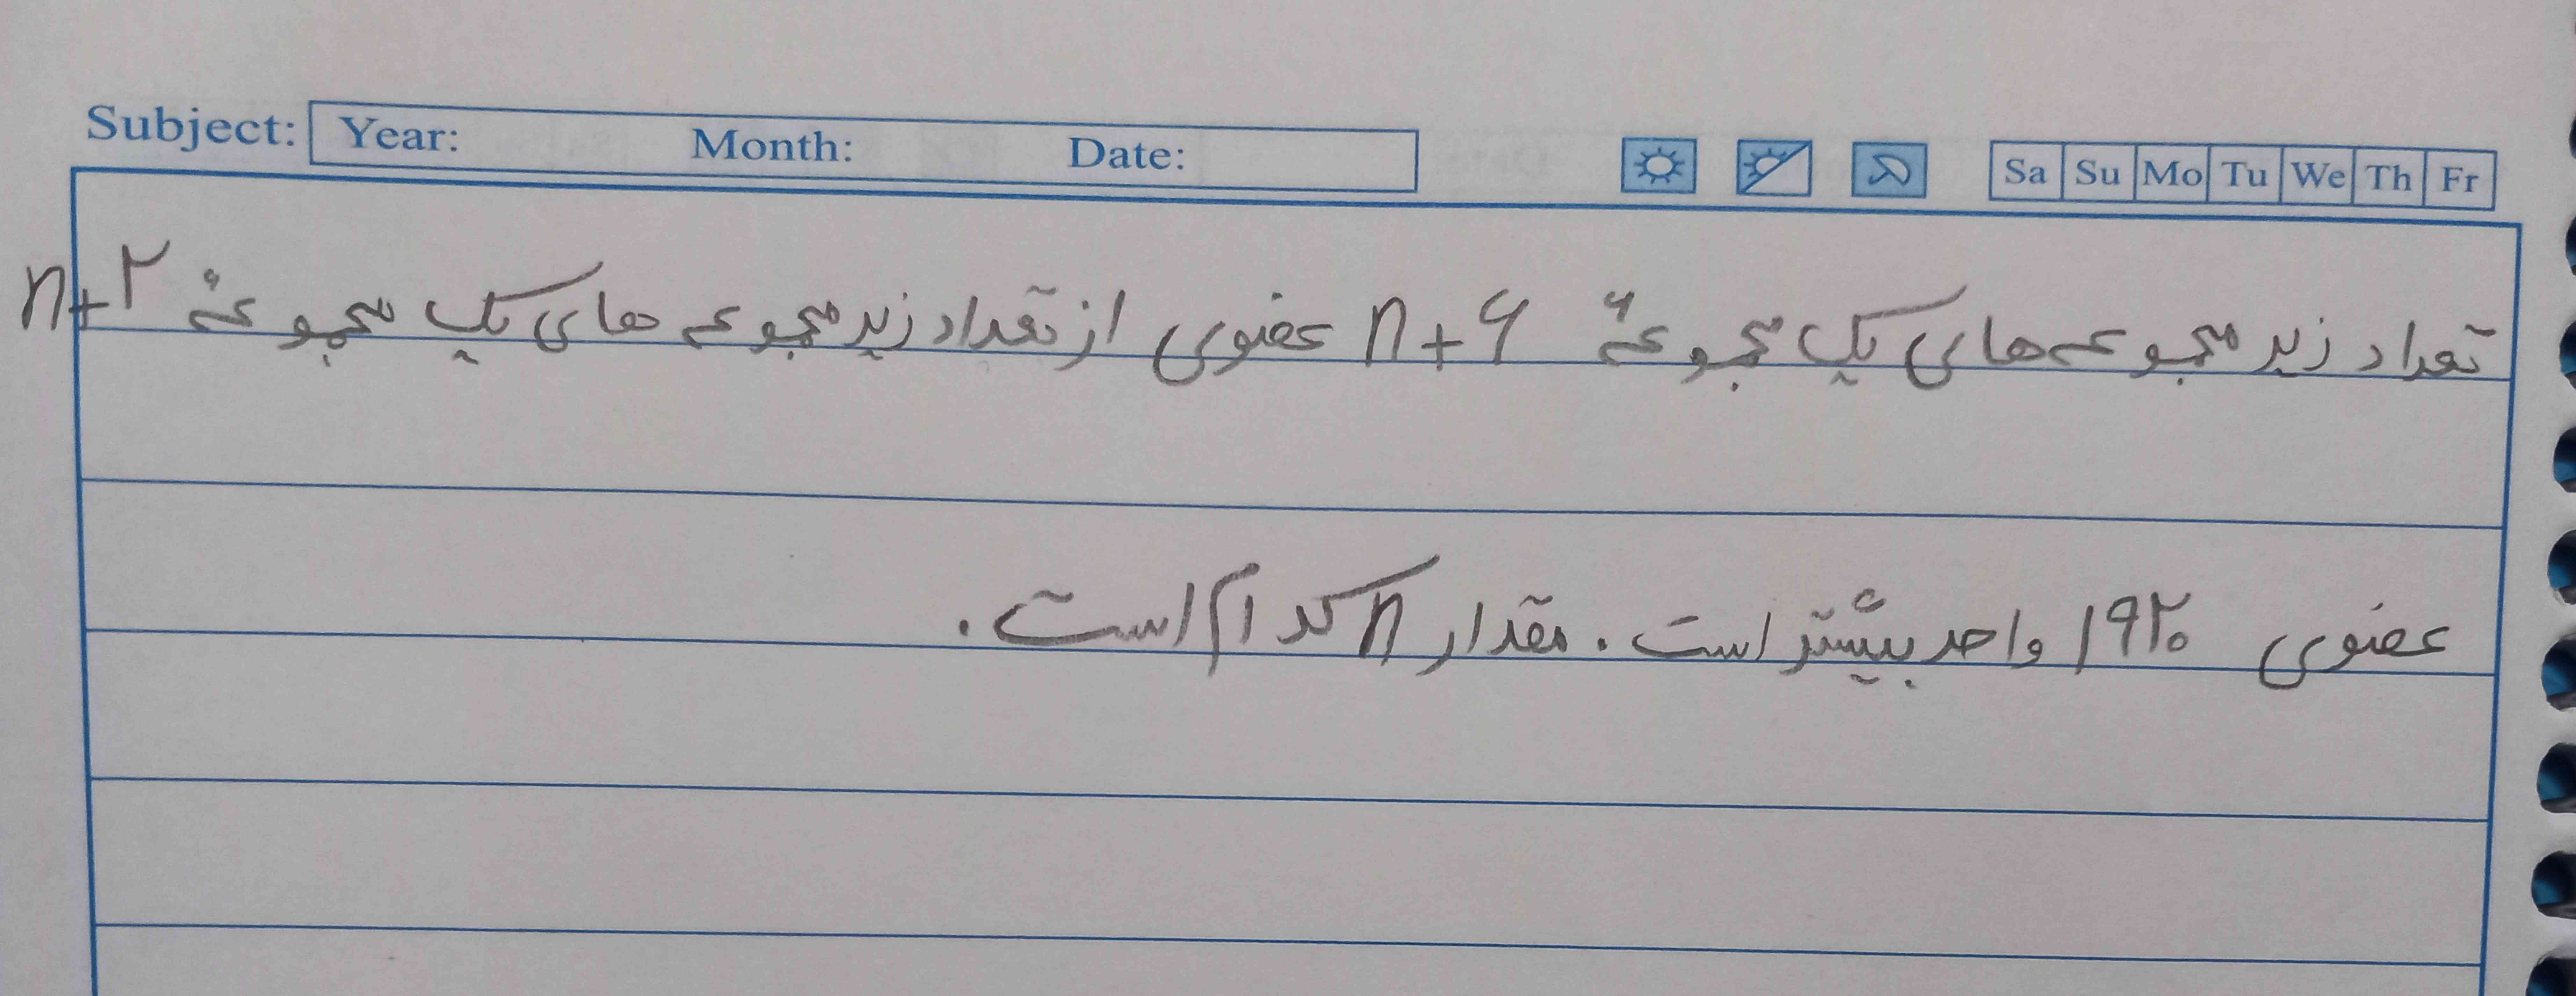 Subject: Year: Month: Date: Sa Su Mo Tu We Th Fr
تعداد زیر مجموعه های یک مجموعهٔ n+۶ عضوی از تعداد زیر مجموعه های یک مجموعهٔ n+۲
عضوی ۱۹۲۰ واحد بیشتر است. مقدار n کدام است.